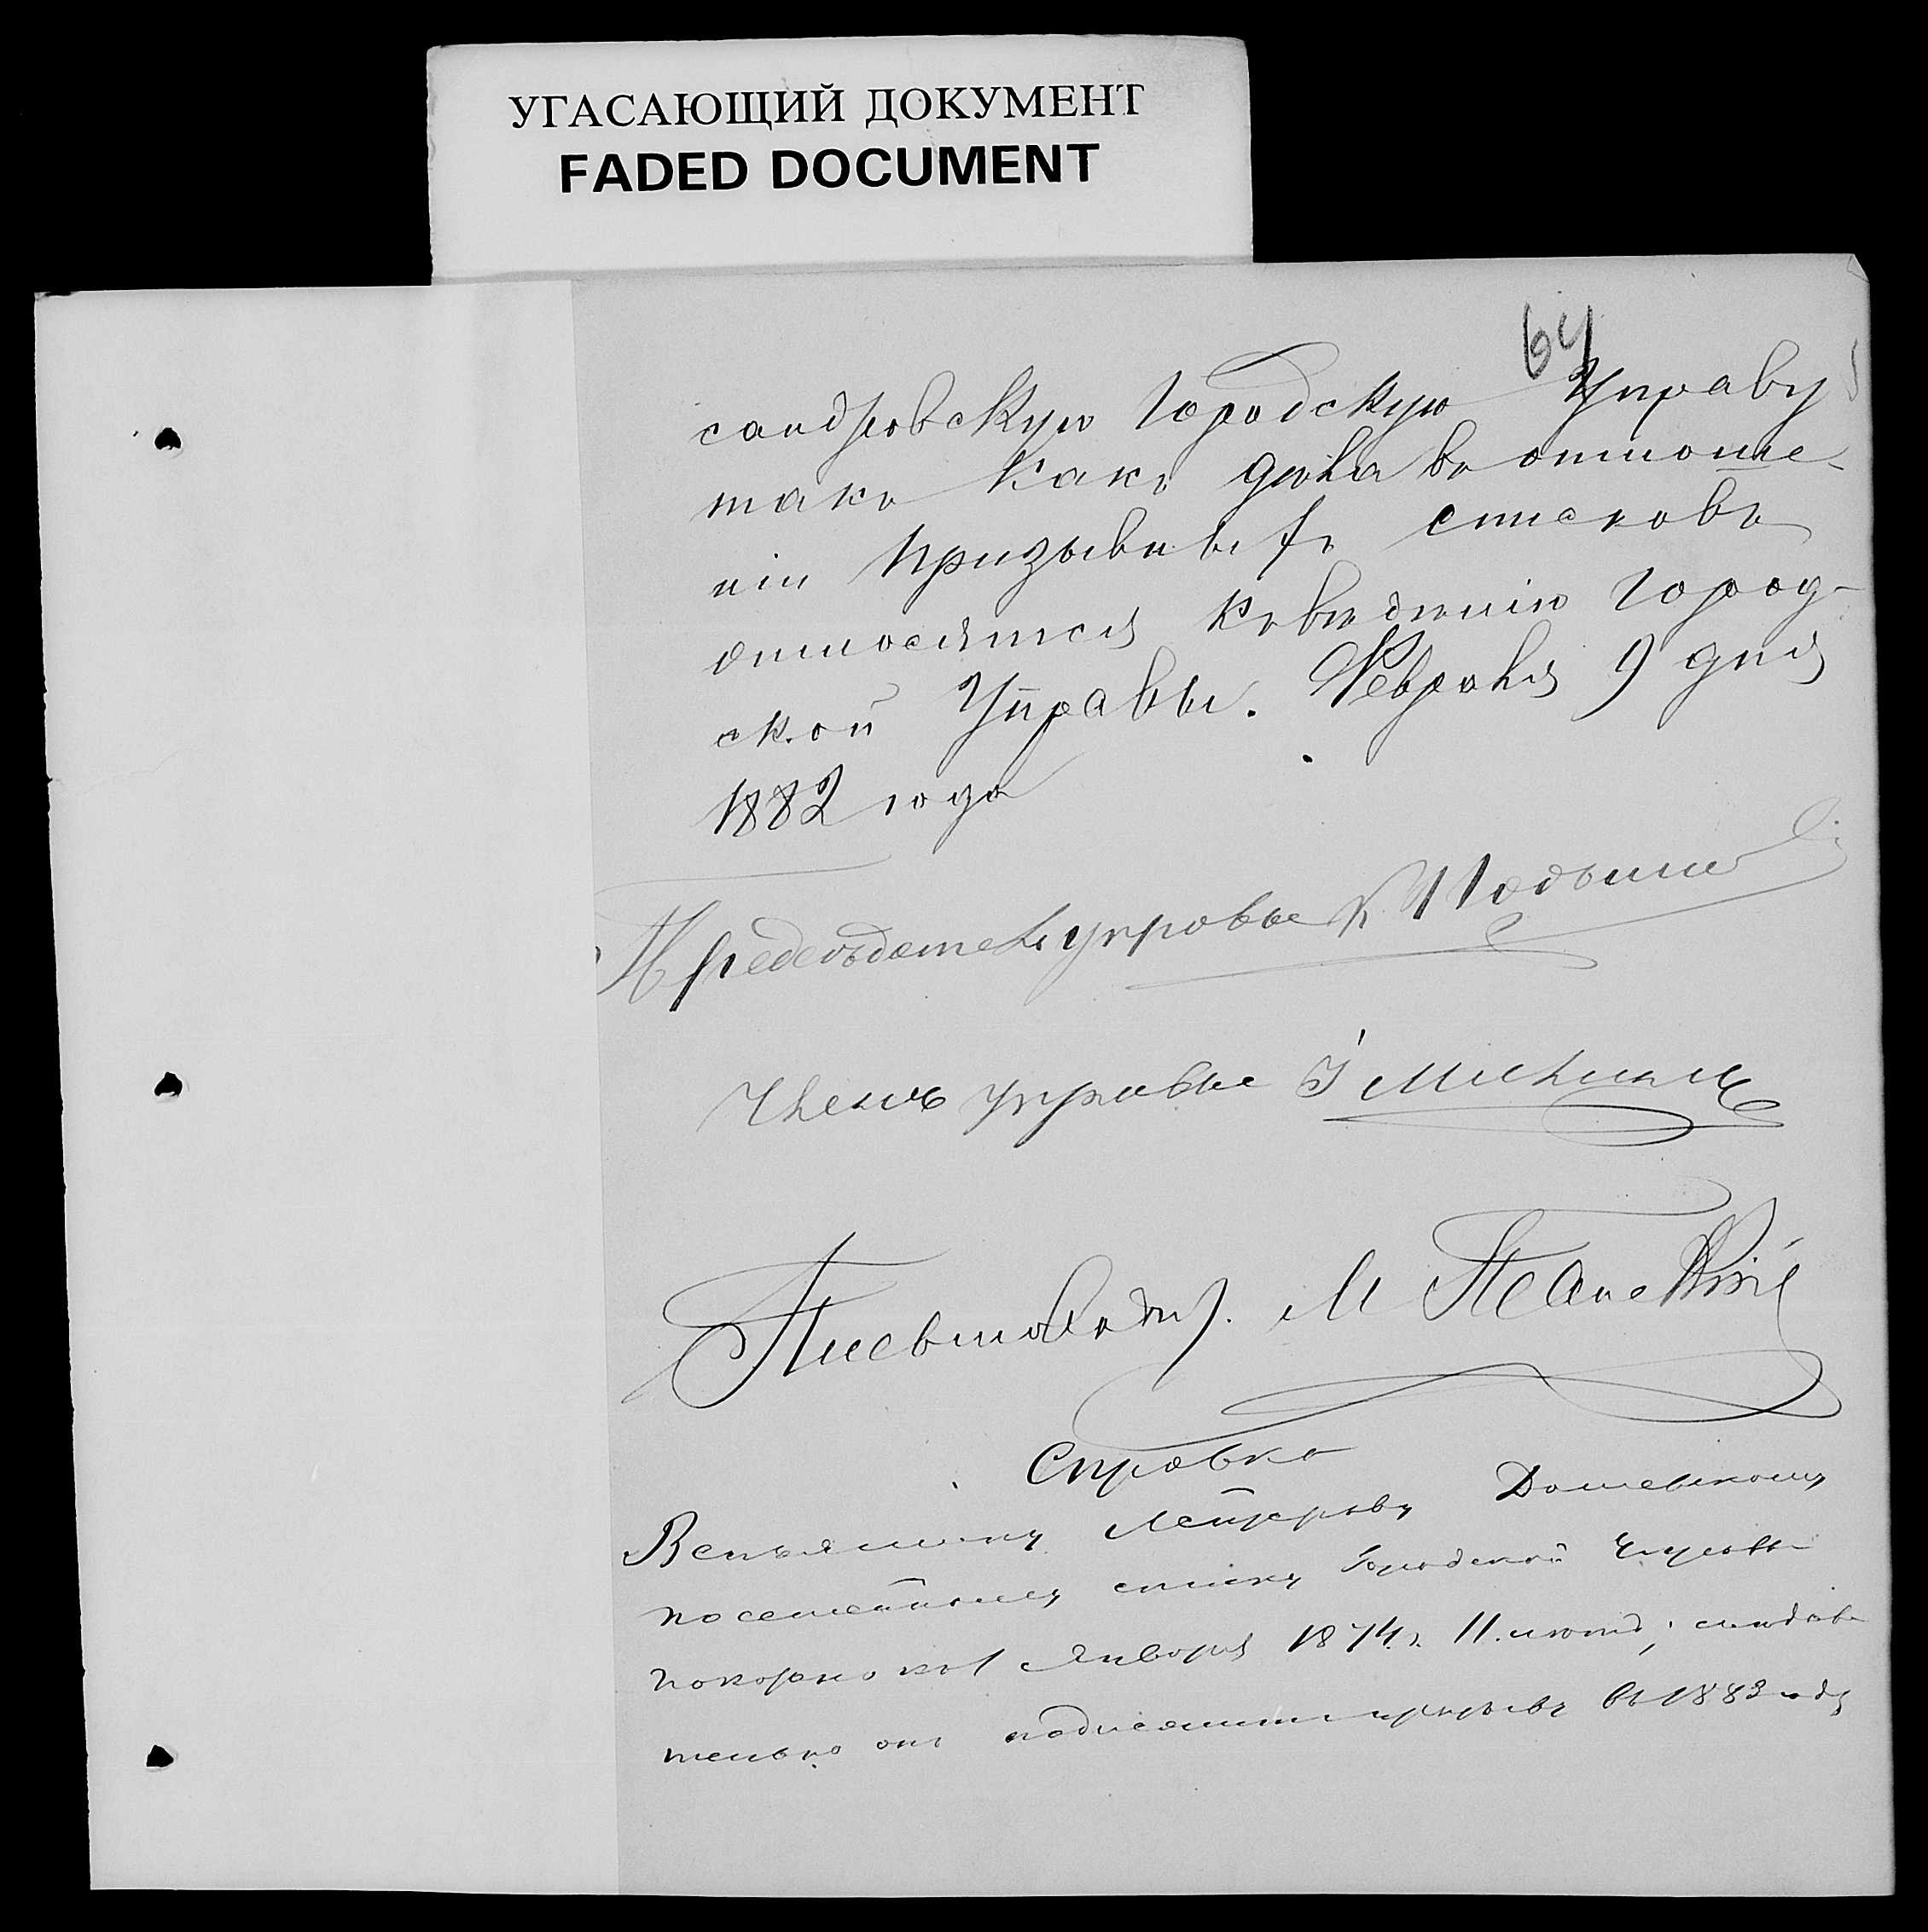 УГАСАЮЩИЙ ДОКУМЕНТ
FADED DOCUMENT
64
сандровскую Городскую Управу
такъ какъ дѣла въ отноше-
ніи призывныхъ списковъ
относятся къ вѣдѣнію Город-
ской Управы. Февраля 9 дня
1882 года
Предсѣдатель управы К
Членъ управы І
Письмоводит. М
Справка
Веньямину Лейзерову
посемейному списку Городской Управы
показано къ 1 Января 1874 г. 11 лѣтъ; слѣдова
тельно онъ подлежитъ призыву въ 1883 году